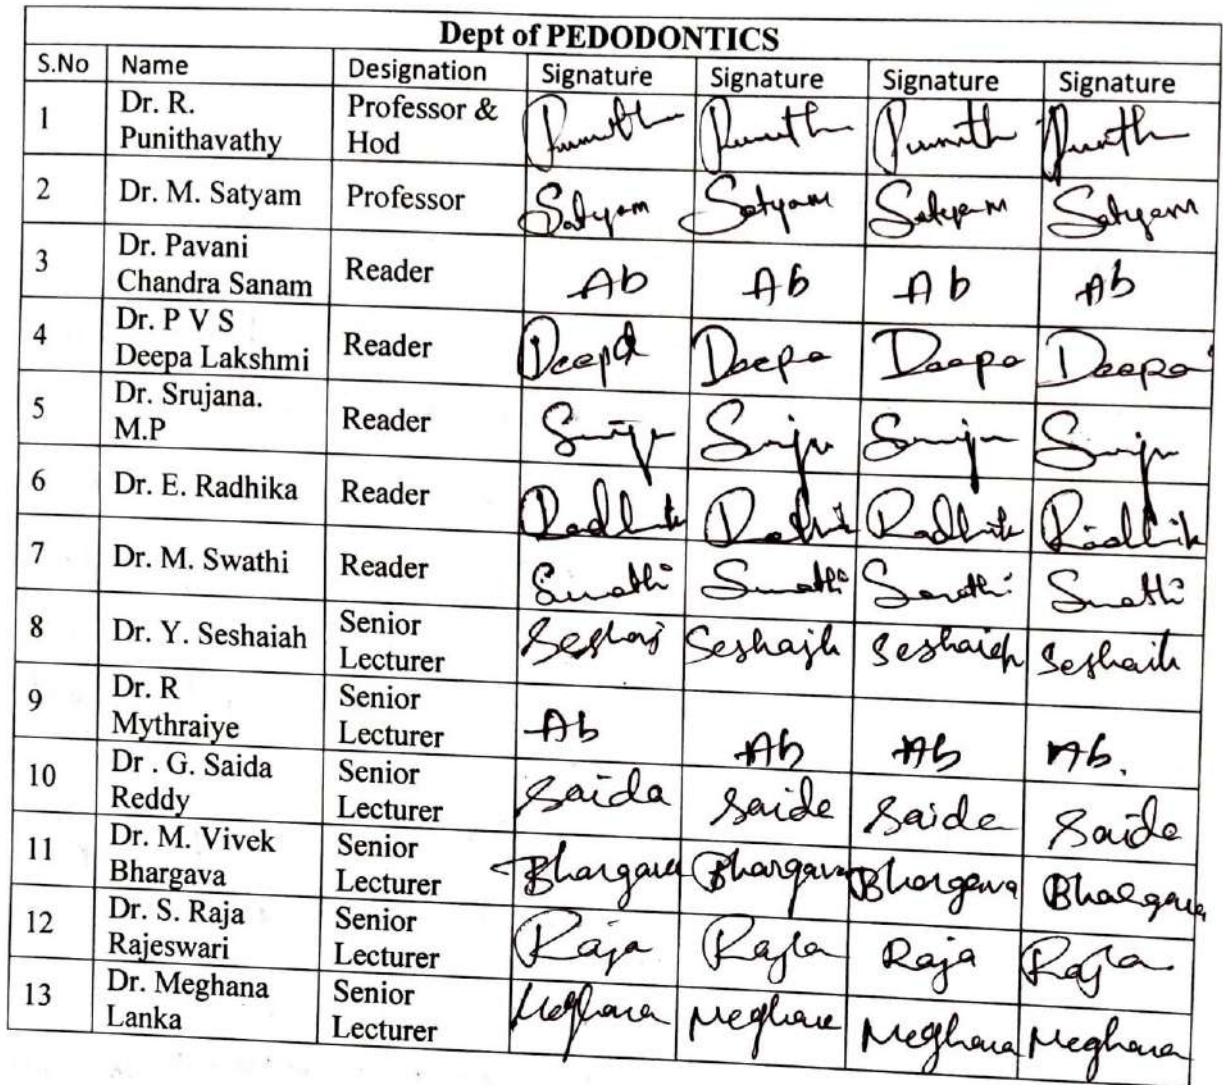 Dept of PEDODONTICS
S.No Name Designation Signature Signature Signature Signature
1 Dr. R. Punithavathy Professor & Hod Punith Punith Punith Punith
2 Dr. M. Satyam Professor Satyam Satyam Satyam Satyam
3 Dr. Pavani Chandra Sanam Reader Ab Ab Ab Ab
4 Dr. P V S Deepa Lakshmi Reader Deepa Deepa Deepa Deepa
5 Dr. Srujana. M.P Reader Sruju Sruju Sruju Sruju
6 Dr. E. Radhika Reader Radhik Radhik Radhik Radhik
7 Dr. M. Swathi Reader Swathi Swathi Swathi Swathi
8 Dr. Y. Seshaiah Senior Lecturer Seshaiah Seshaiah Seshaiah
9 Dr. R Mythraiye Senior Lecturer Ab Ab Ab Ab.
10 Dr . G. Saida Reddy Senior Lecturer Saida Saida Saida Saida
11 Dr. M. Vivek Bhargava Senior Lecturer Bhargava Bhargava Bhargava Bhargava
12 Dr. S. Raja Rajeswari Senior Lecturer Raja Raja Raja Raja
13 Dr. Meghana Lanka Senior Lecturer Meghana Meghana Meghana Meghana